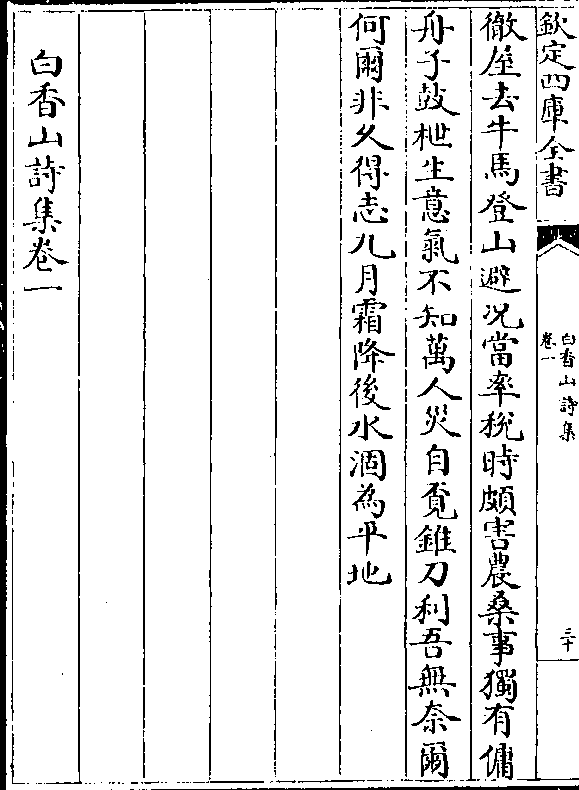 欽定四庫全書
白香山詩集
卷一
三十
徹屋去牛馬登山避况當率稅時頗害農桑事獨有傭
舟子鼓枻生意氣不知萬人災自覓錐刀利吾無奈爾
何爾非久得志九月霜降後水涸為平地
白香山詩集卷一